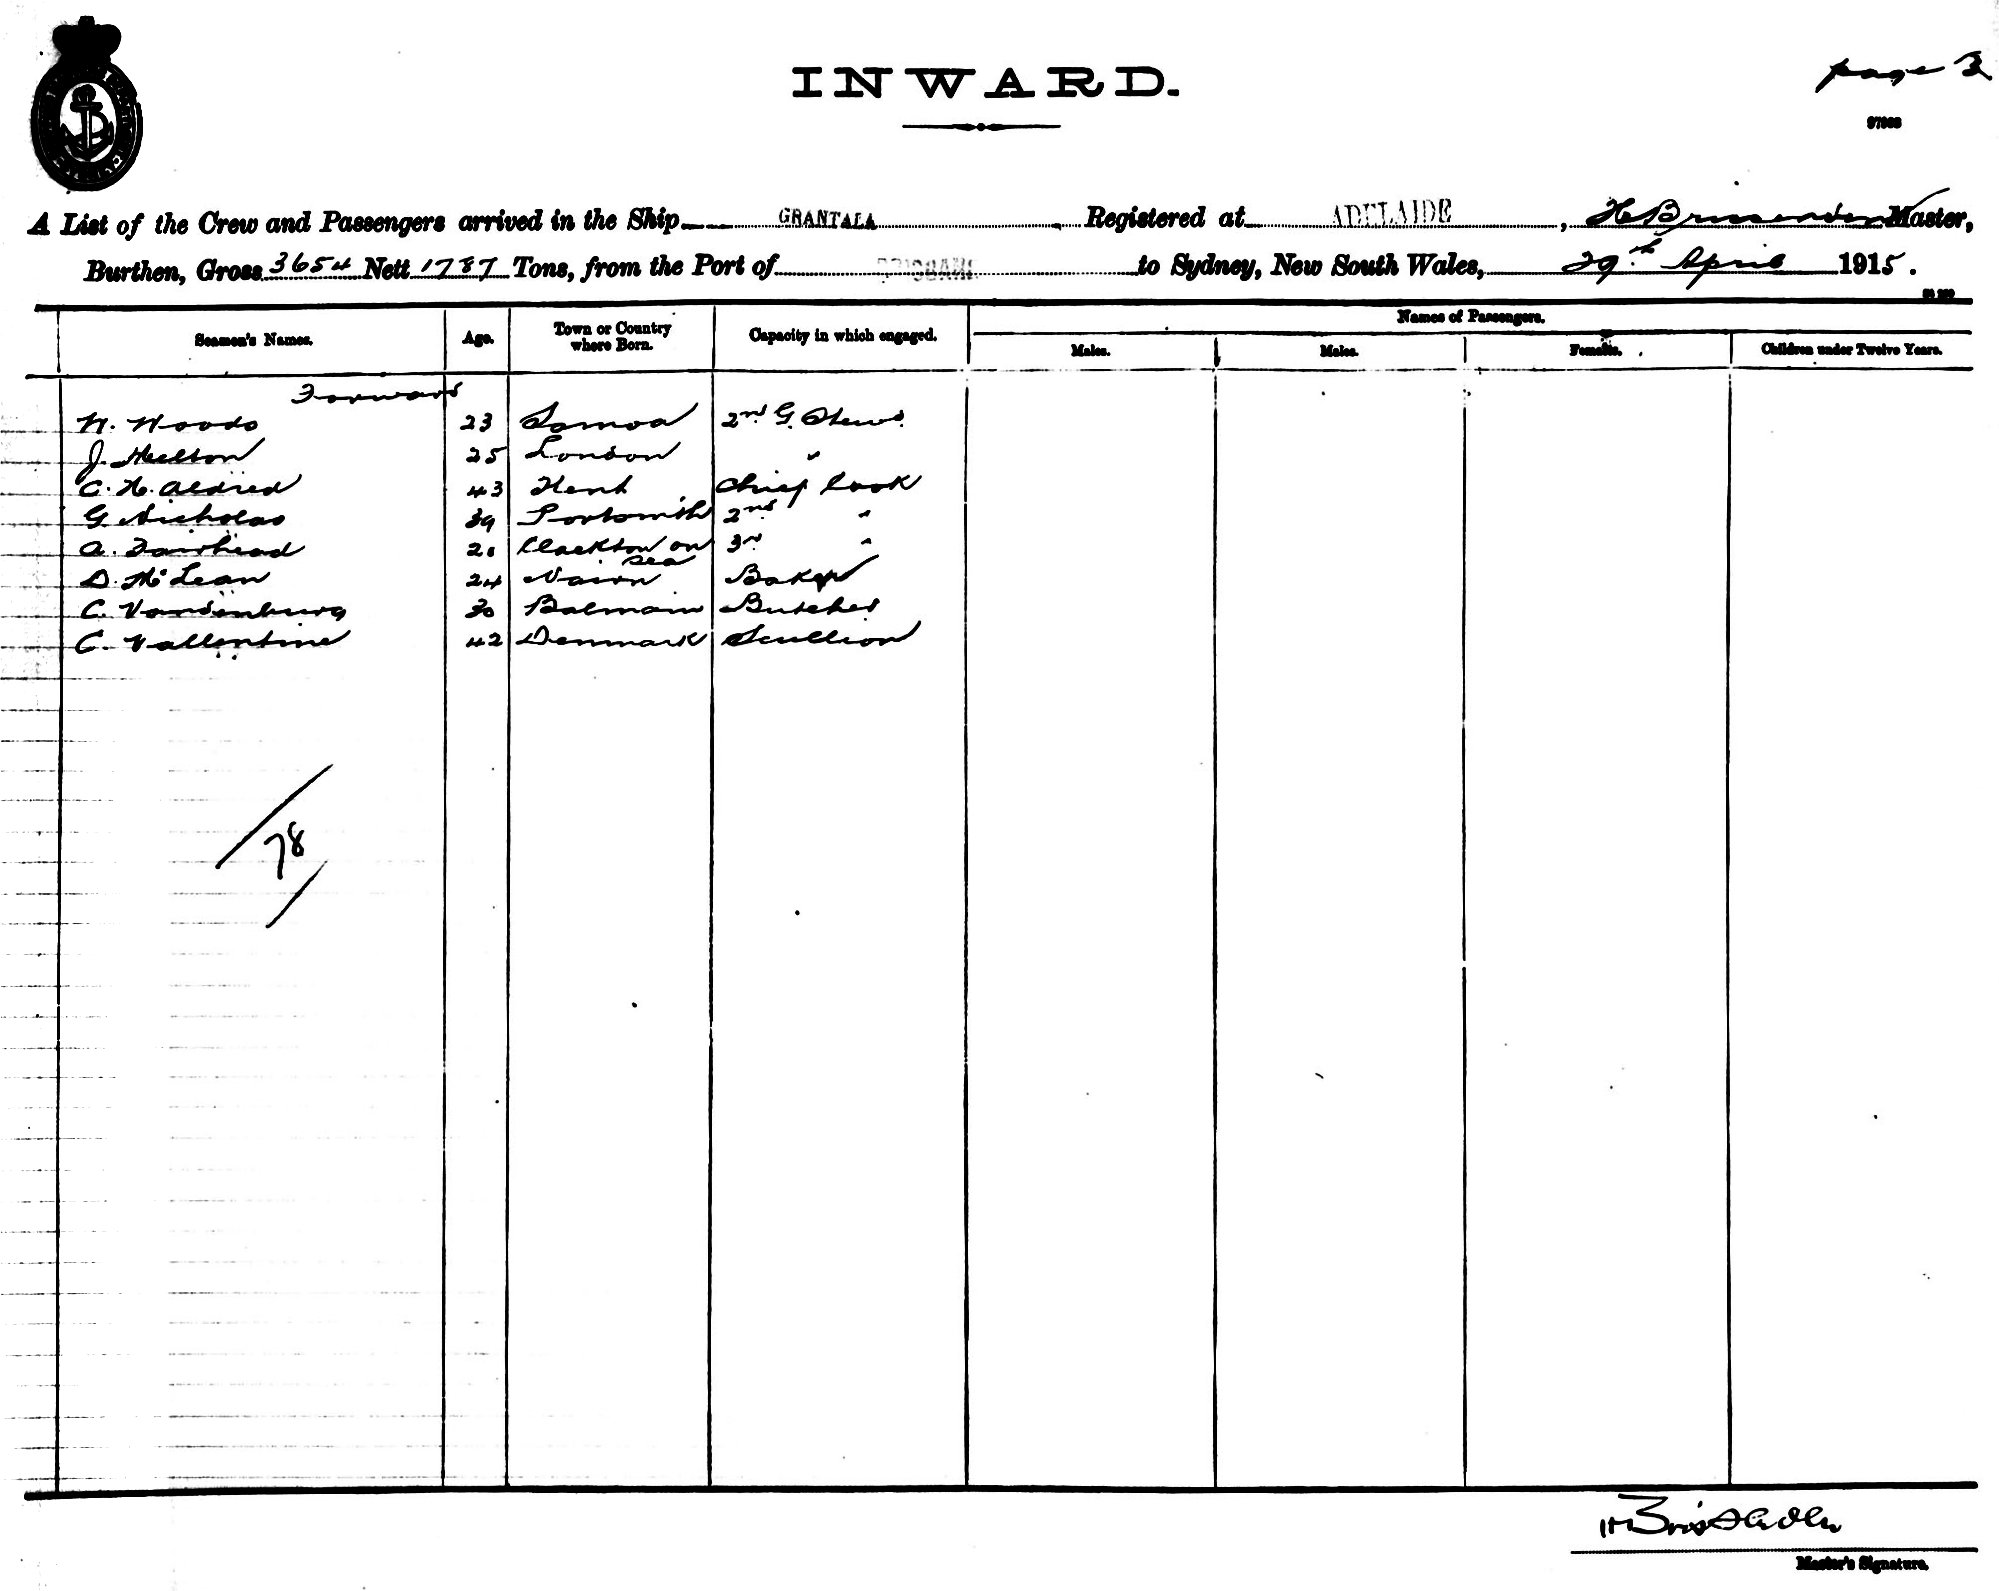 INWARD.
page 3
A List of the Crew and Passengers arrived in the Ship GRANTALA Registered at ADELAIDE, H Brissenden Master,
Burthen, Gross 3654 Nett 1787 Tons, from the Port of BRISBANE to Sydney, New South Wales, 29th April 1915.
Seamen's Names. Age. Town or Country where Born. Capacity in which engaged. Names of Passengers.
Males. Males. Females. Children under Twelve Years.
Forward
W. Woods 23 Samoa 2nd G. Stewd.
J. 25 London "
C. H. Aldred 43 Kent Chief Cook
G. Nicholas 39 Portsmith 2nd "
A. Fairhead 21 Clackton on Sea 3rd "
D. McLean 24 Nairn Baker
C. Vandenburg 30 Balmain Butcher
C. Vallentine 42 Denmark Scullion
78
Master's Signature.